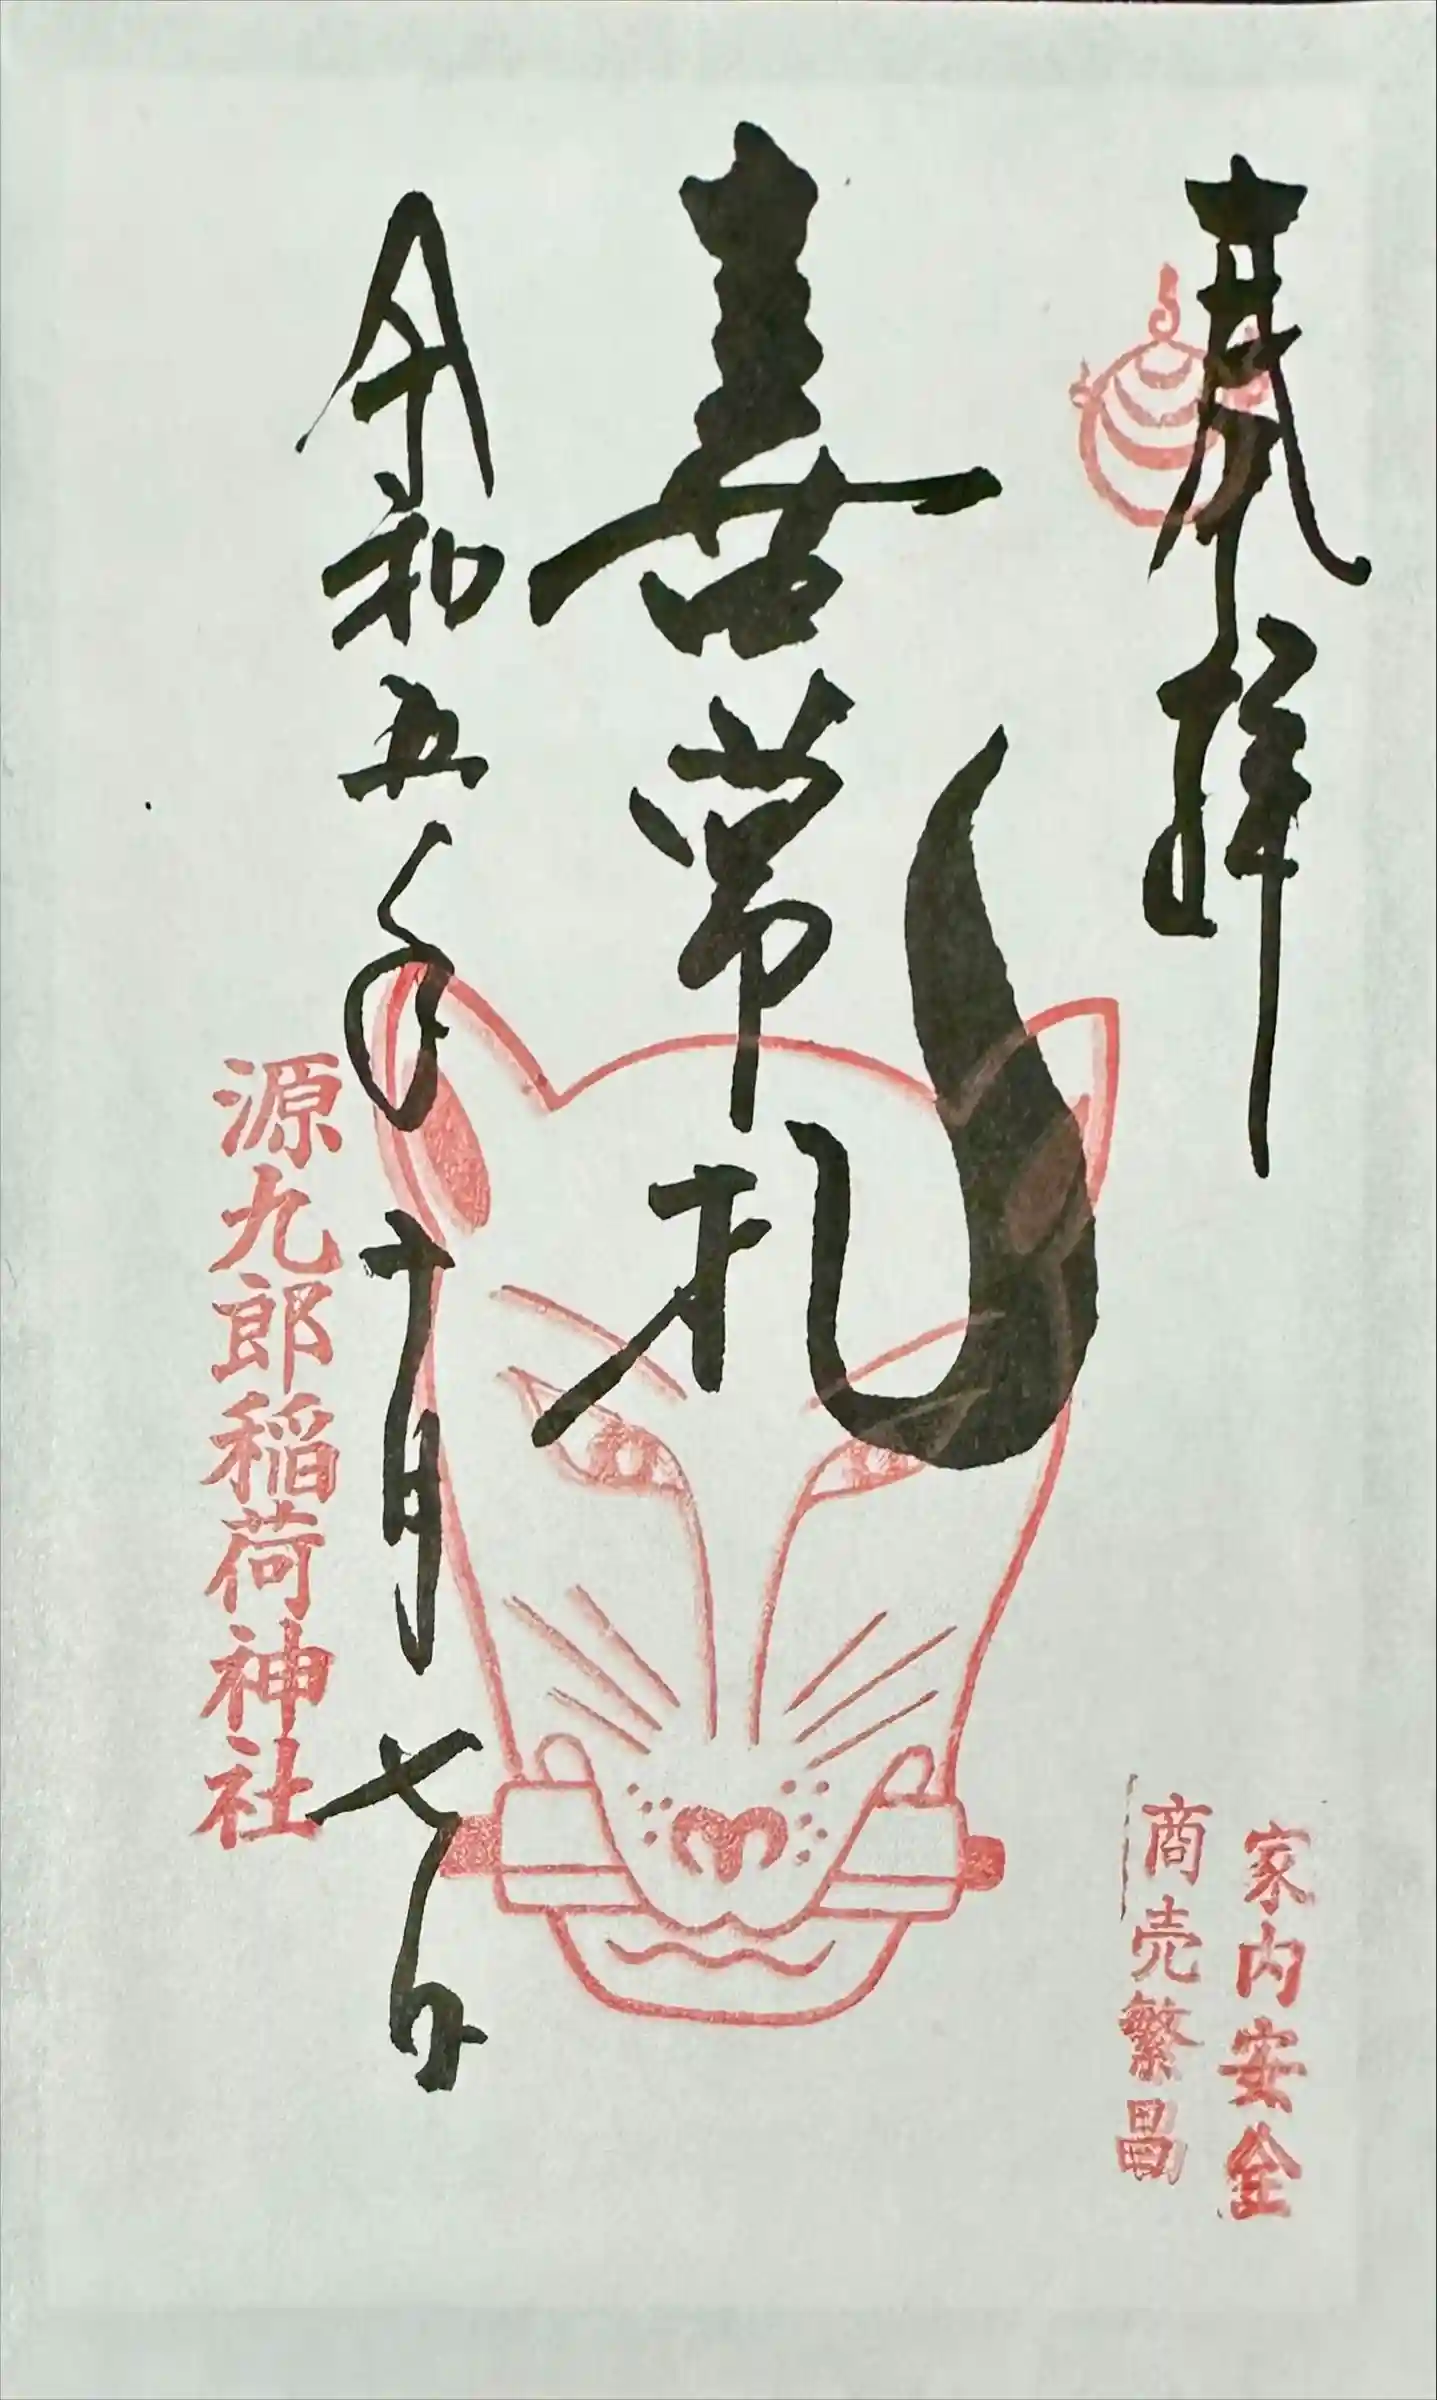 奉拝
家内安全
商売繁昌
喜常札
令和五年十月七日
源九郎稲荷神社